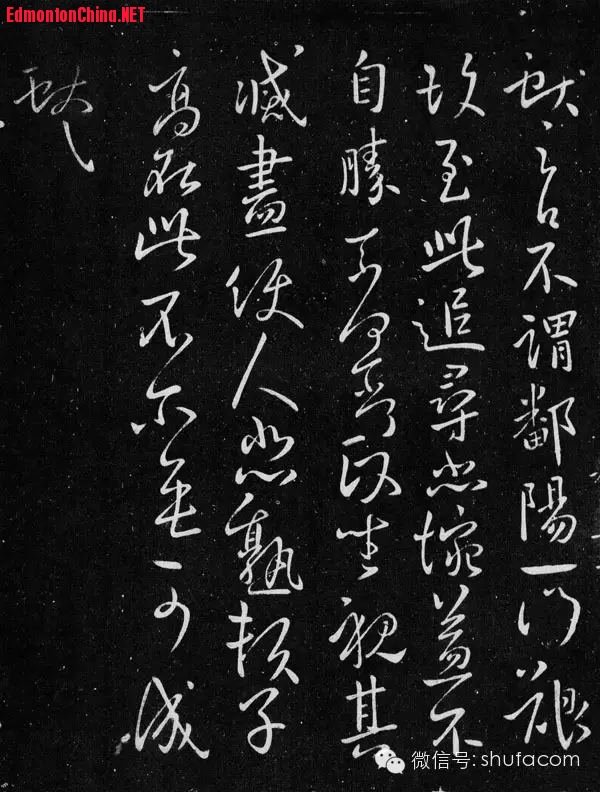 EdmontonChina.NET
獻之白不謂鄱陽一門艱
故至此追尋悲惋益不
自勝奈何奈何政坐視其
滅盡使人悲熟賴子
高在此不尔無一可成
獻之
微信号: shufacom